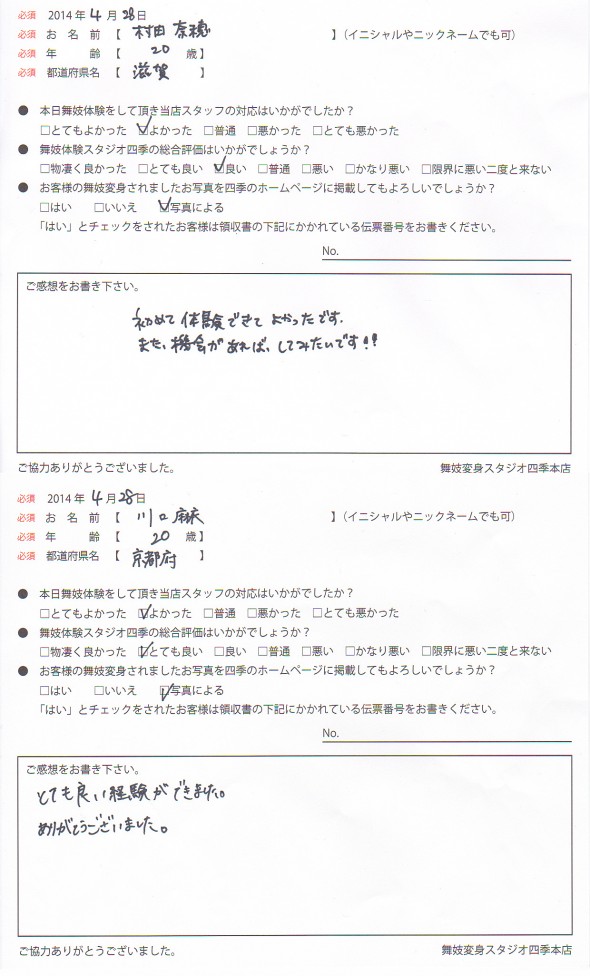 必須 2014年 4月 28日
必須 お名前【 村田 奈穂 】(イニシャルやニックネームでも可)
必須 年齢【 20 歳】
必須 都道府県名【 滋賀 】
● 本日舞妓体験をして頂き当店スタッフの対応はいかがでしたか?
□とてもよかった ☑よかった □普通 □悪かった □とても悪かった
● 舞妓体験スタジオ四季の総合評価はいかがでしょうか?
□物凄く良かった □とても良い ☑良い □普通 □悪い □かなり悪い □限界に悪い二度と来ない
● お客様の舞妓変身されましたお写真を四季のホームページに掲載してもよろしいでしょうか?
□はい □いいえ ☑写真による
「はい」とチェックをされたお客様は領収書の下記にかかれている伝票番号をお書きください。
No.
ご感想をお書き下さい。
初めて体験できてよかったです.
また、機会があれば、してみたいです!!
ご協力ありがとうございました。 舞妓変身スタジオ四季本店
必須 2014年 4月 28日
必須 お名前【 川口 麻衣 】(イニシャルやニックネームでも可)
必須 年齢【 20 歳】
必須 都道府県名【 京都府 】
● 本日舞妓体験をして頂き当店スタッフの対応はいかがでしたか?
□とてもよかった ☑よかった □普通 □悪かった □とても悪かった
● 舞妓体験スタジオ四季の総合評価はいかがでしょうか?
□物凄く良かった ☑とても良い □良い □普通 □悪い □かなり悪い □限界に悪い二度と来ない
● お客様の舞妓変身されましたお写真を四季のホームページに掲載してもよろしいでしょうか?
□はい □いいえ ☑写真による
「はい」とチェックをされたお客様は領収書の下記にかかれている伝票番号をお書きください。
No.
ご感想をお書き下さい。
とても良い経験ができました。
ありがとうございました。
ご協力ありがとうございました。 舞妓変身スタジオ四季本店